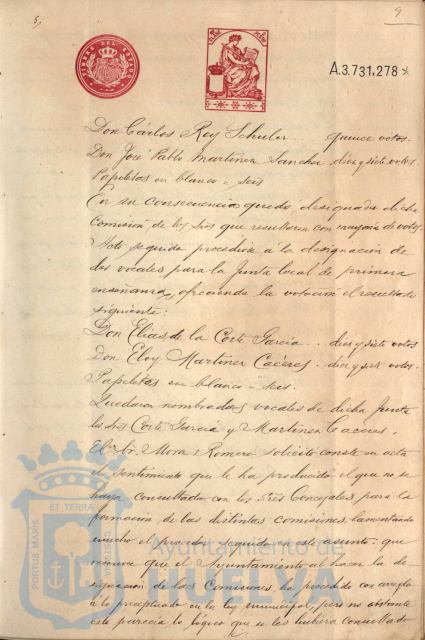 5,
9
TIMBRE DEL ESTADO
A.3.731.278
Don Cárlos Rey Schuler .. quince votos.
Don José Pablo Martinez Sanchez diez y siete votos.
Papeletas en blanco = seis
En su consecuencia quedó designada dicha
Comisión de los Sres que resultaron con mayoría de votos.
Acto seguido procedióse á la designación de
dos vocales para la Junta local de primera
enseñanza, ofreciendo la votación el resultado
siguiente:
Don Elias de la Corte Garcia .. diez y siete votos
Don Eloy Martinez Caceres. diez y siete votos.
Papeletas en blanco = seis.
Quedaron nombrados vocales de dicha Junta
los Sres Corte Garcia y Martinez Caceres.
El Sr. Mora Romero solicitó conste en acta
el sentimiento que le ha producido el que no se
haya consultado con los Sres Concejales para la
formación de las distintas comisiones, lamentando
mucho el proceder seguido en este asunto: que
que el Ayuntamiento al hacer la de-
signación de las Comisiones ha procedido con arreglo
á lo preceptuado en la ley municipal, pero no obstante
este parecía lo lógico que se les hubiera consultado
PORTUS MARIS ET TERRAE CUSTODIA
Ayuntamiento de
HUELVA